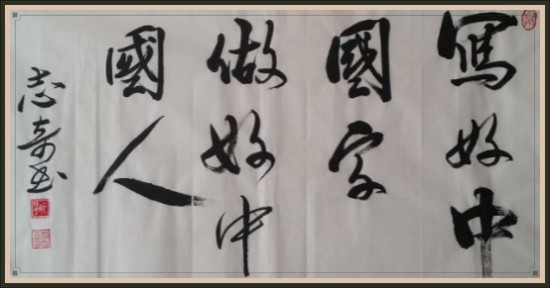 寫好中
國字
做好中
國人
志奇书